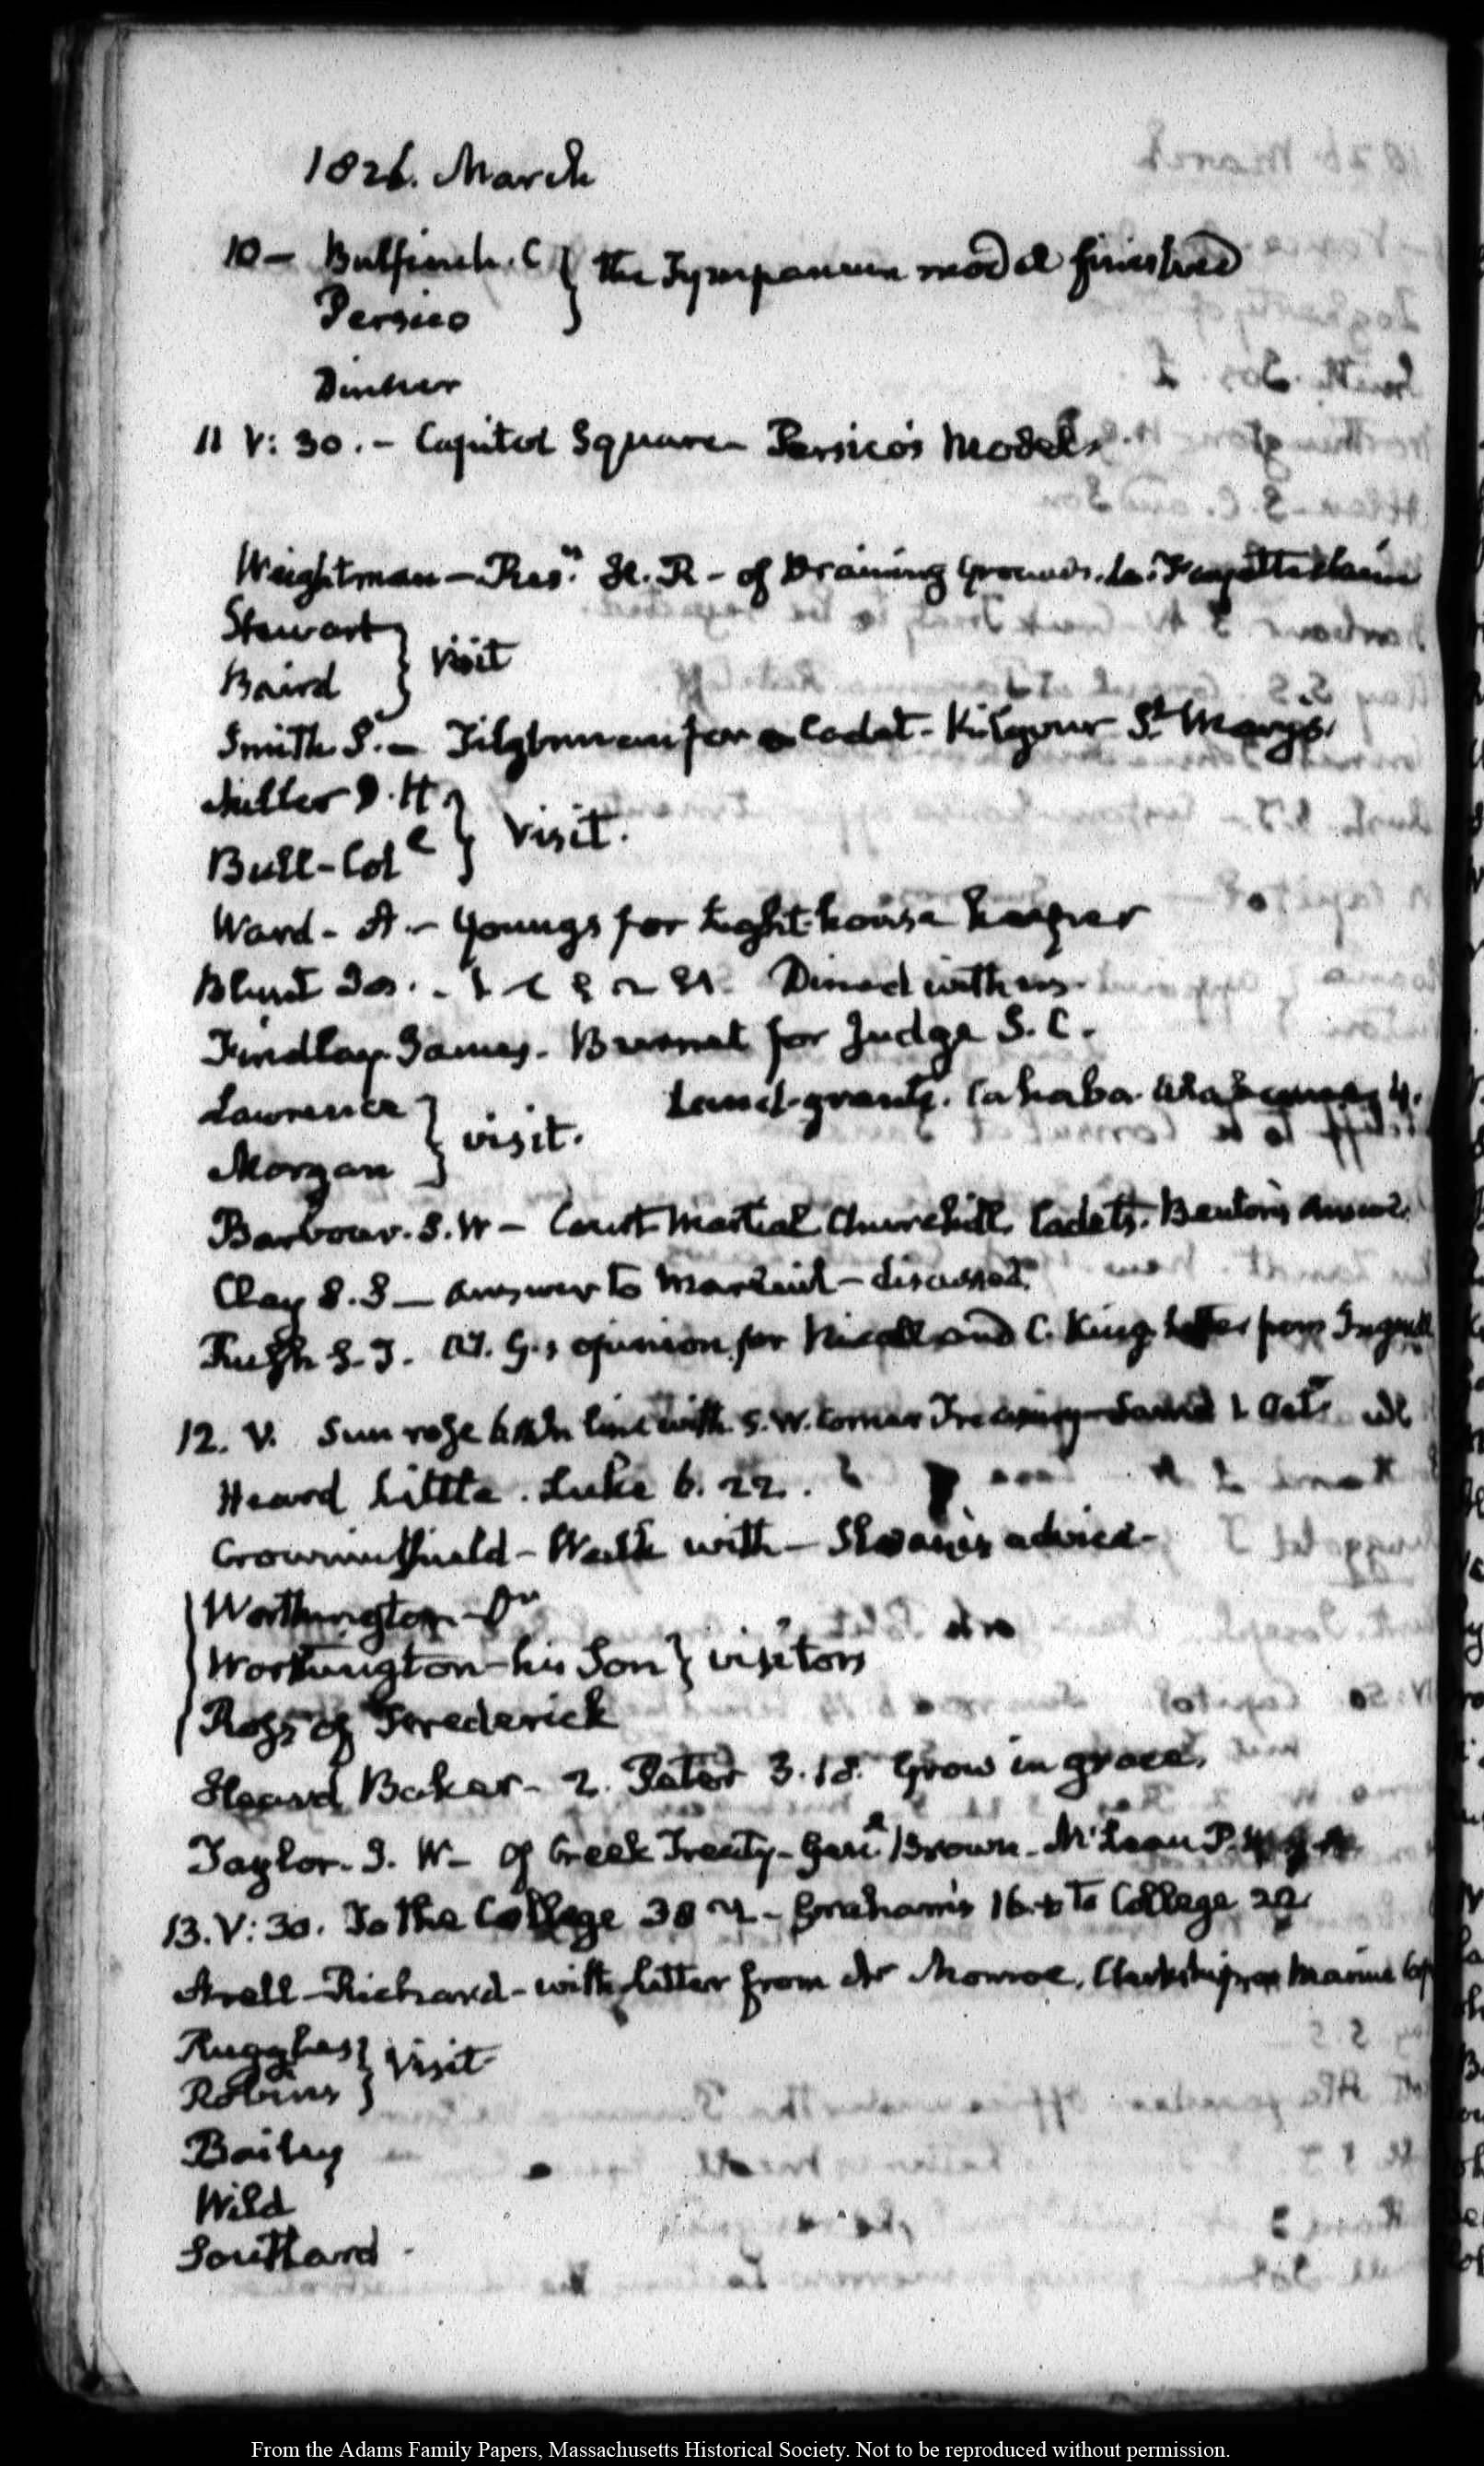 1826. March
10 — Bulfinch. C } the Tympanum model finished
Persico
Dinner
11 V: 30. - Capitol Square - Persico's Models
Weightman — Resn. H. R - of Draining Grounds. La Fayette claim
Stewart } visit
Baird
Smith S. — Tilghman for a Cadet - Kilgour St. Mary's.
Miller D. H } visit.
Bull - Col
Ward - A. - Youngs for Light-house keeper
Blunt Jos. - Dined with us.
Findlay James. Burnet for Judge S. C.
Lawrence } visit. Land-grants. Cahaba.
Morgan
Barbour. S. W — Court Martial Churchill. Cadets. Benton's Answer
Clay S. S — Answer to Mareuil — discussed.
Rush S. T. At. G.'s opinion for Nicoll and C. King. Letter from
12. V. Sun rose in line with S. W. corner Treasury
Heard Little. Luke 6. 22.
Crowninshield - Walk with - Sloane's advice -
Worthington - Dr
Worthington - his Son } visitors
Ross of Frederick
Heard Baker - 2. Peter 3. 18. Grow in grace.
Taylor. J. W - of Creek Treaty - Genl. Brown - McLean P. M. G.
13. V: 30. To the College 38 - Graham's 16. to College 22
Arell - Richard - with letter from Mr Monroe. Clerkship Marine
Ruggles } visit
Robins
Bailey
Wild
Southard -
From the Adams Family Papers, Massachusetts Historical Society. Not to be reproduced without permission.